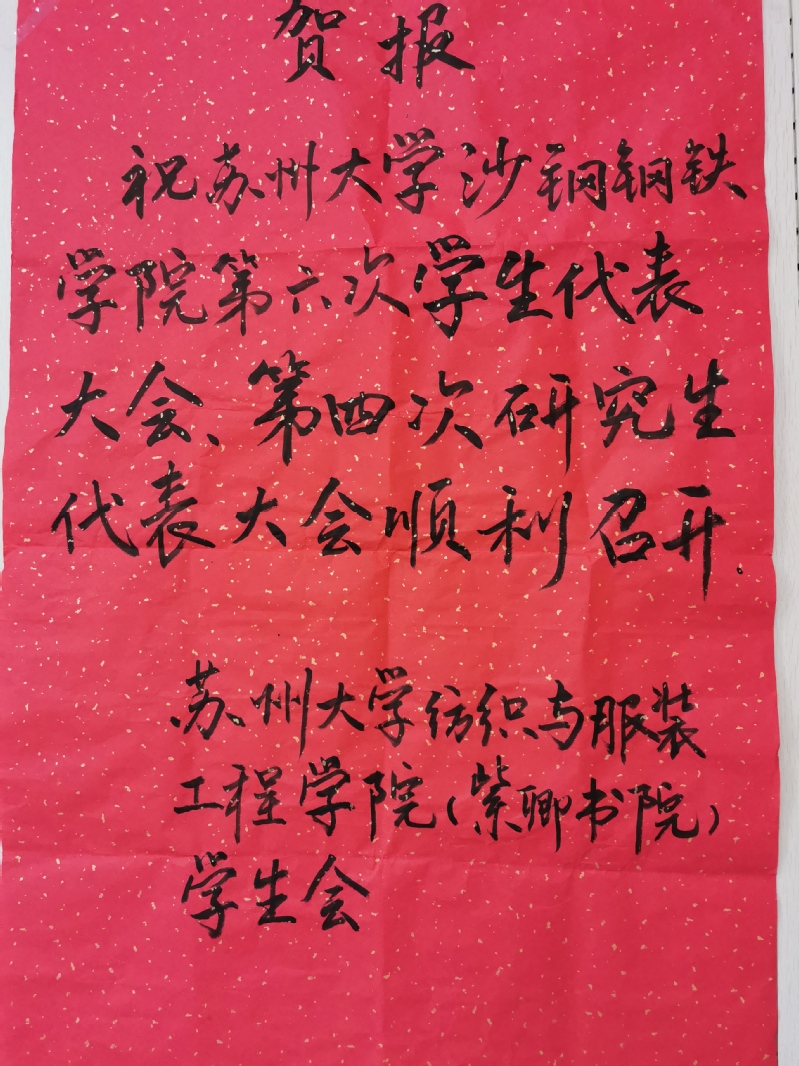 贺报
祝苏州大学沙钢钢铁
学院第六次学生代表
大会、第四次研究生
代表大会顺利召开.
苏州大学纺织与服装
工程学院(紫卿书院)
学生会